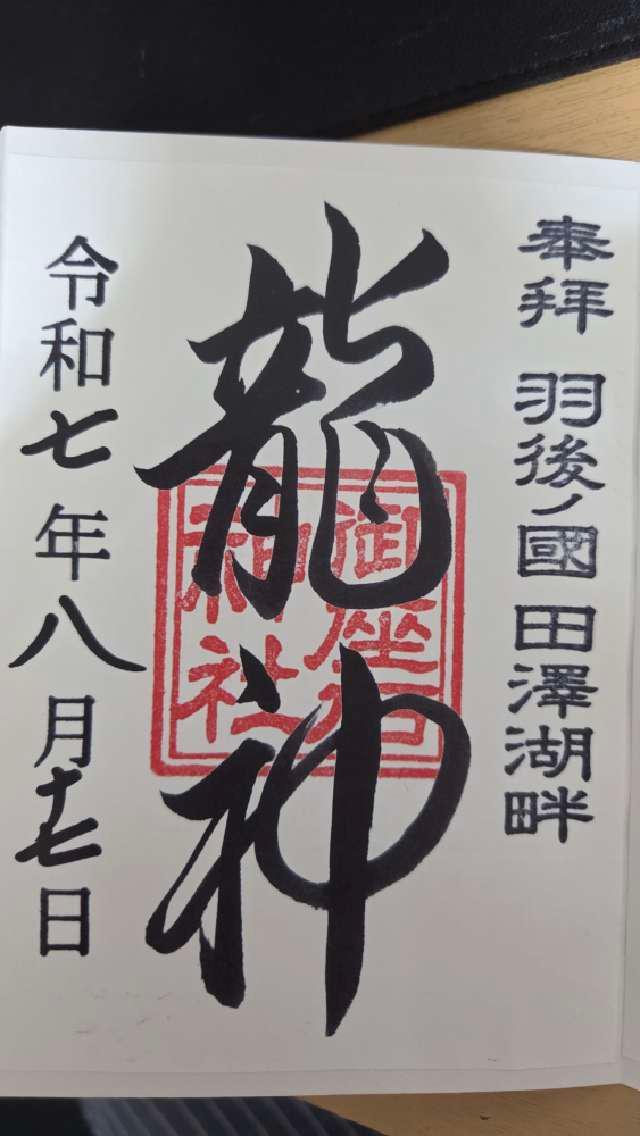 奉拝 羽後ノ國 田澤湖畔
龍神
御座石
神社
令和七年八月十七日